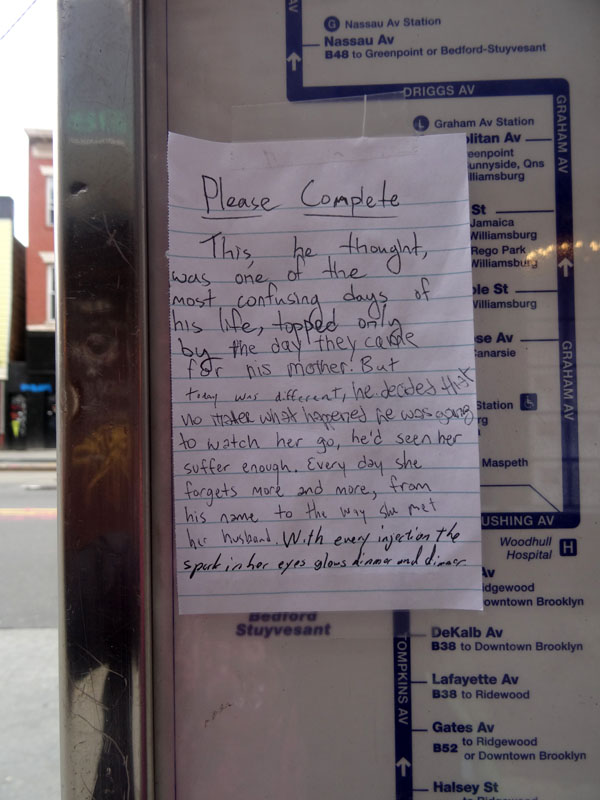 AV
G Nassau Av Station
Nassau Av
B48 to Greenpoint or Bedford-Stuyvesant
DRIGGS AV
GRAHAM AV
L Graham Av Station
olitan Av
eenpoint
unnyside, Qns
lliamsburg
St
Jamaica
Williamsburg
Rego Park
Williamsburg
ole St
Williamsburg
se Av
Canarsie
GRAHAM AV
Station
rg
Maspeth
USHING AV
Woodhull
Hospital H
Av
Ridgewood
Downtown Brooklyn
Bedford
Stuyvesant
TOMPKINS AV
DeKalb Av
B38 to Downtown Brooklyn
Lafayette Av
B38 to Ridewood
Gates Av
B52 to Ridgewood
or Downtown Brooklyn
Halsey St
Please Complete
This, he thought,
was one of the
most confusing days of
his life, topped only
by the day they came
for his mother. But
today was different, he decided that
no matter what happened he was going
to watch her go, he'd seen her
suffer enough. Every day she
forgets more and more, from
his name to the way she met
her husband. With every injection the
spark in her eyes glows dimmer and dimmer